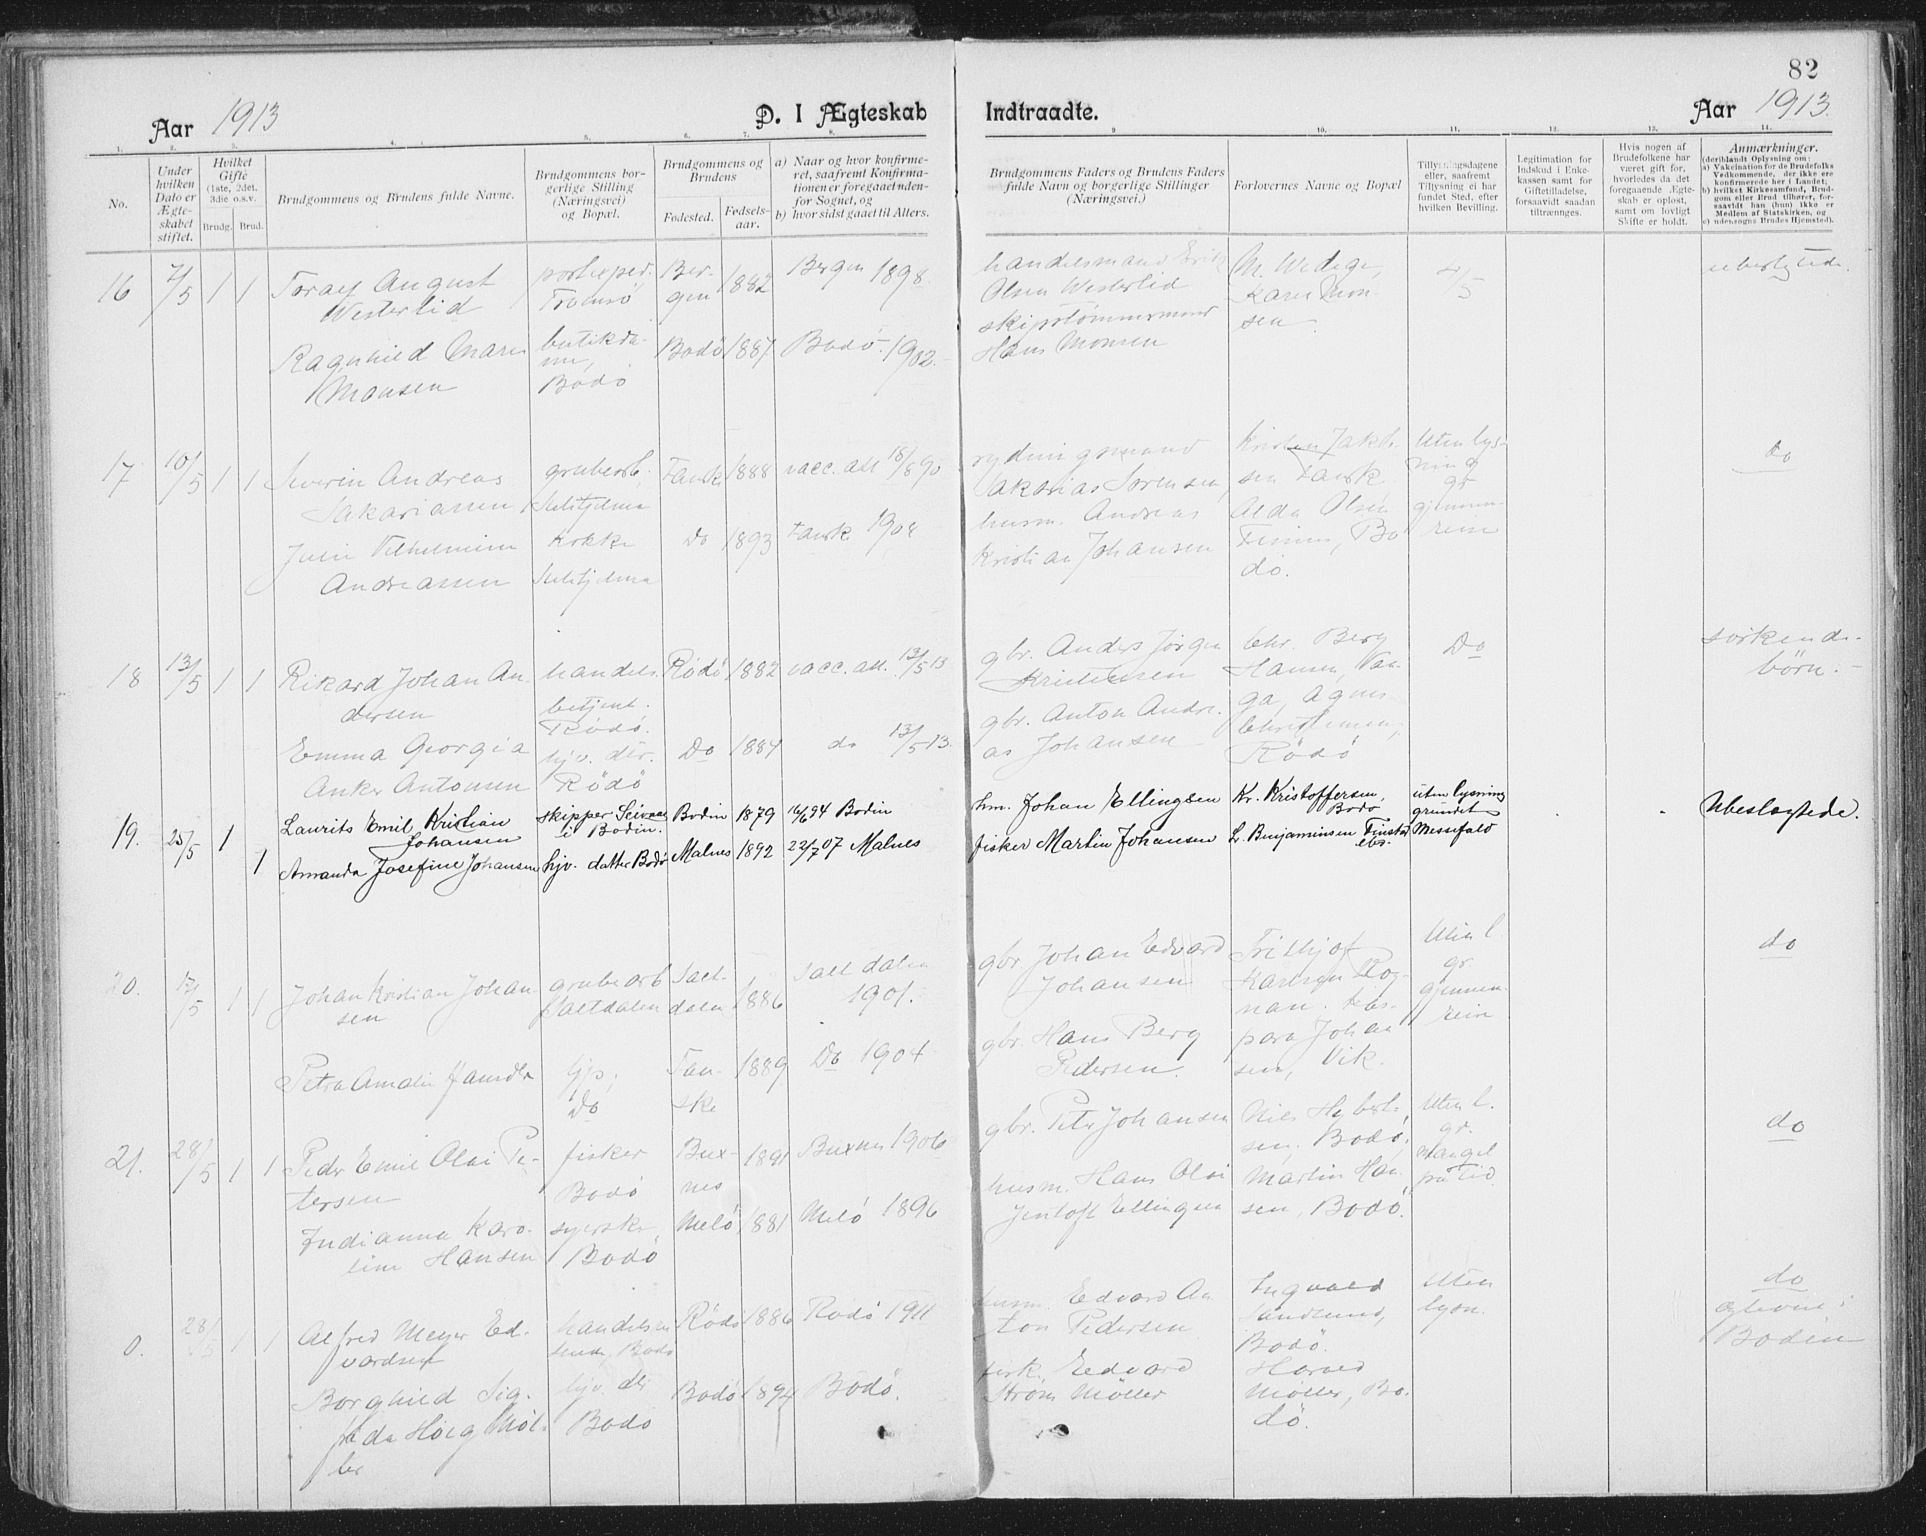 82
Aar 1913
D. I Ægteskab
Indtraadte.
Aar 1913.
1. 2. 3. 4. 5. 6. 7. 8. 9. 10. 11. 12. 13. 14.
No.
Under
hvilken
Dato er
Ægte-
skabet
stiftet.
Hvilket
Gifte
(1ste, 2det.
3die o.s.v.
Brudg. Brud.
Brudgommens og Brudens fulde Navne.
Brudgommens bor-
gerlige Stilling
(Næringsvei)
og Bopæl.
Brudgommens og
Brudens
Fødested.
Fødsels-
aar.
a) Naar og hvor konfirme-
ret, saafremt Konfirma-
tionen er foregaaet uden-
for Sognet, og
b) hvor sidst gaaet til Alters.
Brudgommens Faders og Brudens Faders
fulde Navn og borgerlige Stillinger
(Næringsvei.)
Forlovernes Navne og Bopæl
Tillysningsdagene
eller, saafremt
Tillysning ei har
fundet Sted, efter
hvilken Bevilling.
Legitimation for
Indskud i Enke-
kassen samt for
Giftetilladelse,
forsaavidt saadan
tiltrænges.
Hvis nogen af
Brudefolkene har
været gift før,
hvorledes da det
foregaaende Ægte-
skab er opløst,
samt om lovligt
Skifte er holdt.
Anmærkninger.
(deriblandt Oplysning om:
a) Vakcination for de Brudefolks
Vedkommende, der ikke ere
konfirmerede her i Landet;
b) hvilket Kirkesamfund, Brud-
gom eller Brud tilhører, for-
saavidt han (hun) ikke er
Medlem af Statskirken, og
c) udensogns Brudes Hjemsted).
16 7/5 1 1 August
Westerlid
Tromsø
Ber-
gen
1882 Bergen 1898.
handelsmand
Olsen Westerlid
M. Wedege,
Karen Mon
sen.
4/5
ubeslegtede.
Ragnhild Marie
Monsen
butikda-
me,
Bodø
Bodø 1887 Bodø 1902.
skipstømmermand
Hans Monsen
17 10/5 1 1 Severin Andreas
Sakariassen
grubearb.
Sulitjelma
Fausk 1888 vacc. att 18/8 90
rydningsmand
Sakarias Sørensen
Kristen Jakob-
sen Fausk
Uten lys-
ning
gr
gjennem-
reise
do
Julie Vilhelmine
Andreassen
Kokke
Sulitjelma
Do 1893 Fausk 1908
husm. Andreas
Kristian Johansen
Alda Olsen
Bo
dø.
18 13/5 1 1 Rikard Johan An-
dersen
handels.
betjent.
Rødø.
Rødø 1882 vacc. att. 13/5 13
gbr. Anders Jørgen
Kristensen
Chr. Berg
Hansen,
Do
søskende-
børn.
Emma Georgia
Anker Antonsen
hjv. dtr.
Rødø
Do 1884 do 13/5 13.
gbr. Anton Andre-
as Johansen
Agnes
Christensen,
Rødø
19. 25/5 1 Laurits Emil Kristian
Johansen
skipper Seivaag
i Bodin.
Bodin 1879 16/6 94 Bodin
hm. Johan Ellingsen
Kr. Kristoffersen,
Bodø
uten lysning
grundet
Messefald
Ubeslegtede.
1 Amanda Josefine Johansen hjv. datter Bodø Malnes 1892 22/7 07 Malnes
fisker Martin Johansen
L. Benjaminsen Finstad
ebs.
20. 17/5 1 1 Johan Kristian Johan-
sen
grubearb
Saltdalen
Salt-
dalen
1886 Saltdalen
1901.
gbr. Johan Edvard
Johansen
Frithjof
Karlsen Rog-
nan.
Uten l.
gr.
gjennem-
reise
do
Petra Amalie
Do
Fau-
ske
1889 Do 1904
gbr. Hans Berg
Pedersen.
Johan
sen, Vik.
21. 28/5 1 1 Peder Emil Olai Pe-
tersen
fisker
Bodø
Bux-
nes
1891 Buxnes 1906
gbr. Petr Johansen
Nils Hybert-
sen, Bodø,
Uten l.
gr.
mangel
paa Tid
do
Indianna Karo-
line Hansen
syerske,
Bodø
Melø 1881 Melø 1896
husm. Hans Olai
Jentoft Ellingsen
Martin Han-
sen, Bodø.
0. 28/5 1 1 Alfred Meyer Ed-
vardsen
Bodø
Rødø 1886 Rødø 1911
husm. Edvard An
ton Pedersen
Ingvald
Sandlund,
Bodø.
Uten
lysn.
do
Bodin
Borghild Sig-
Høeg Møl-
ler
hjv. dtr
Bodø
Bodø 1894 Bodø.
fisk. Edvard
Strøm Møller
Harald
Møller, Bo-
dø.